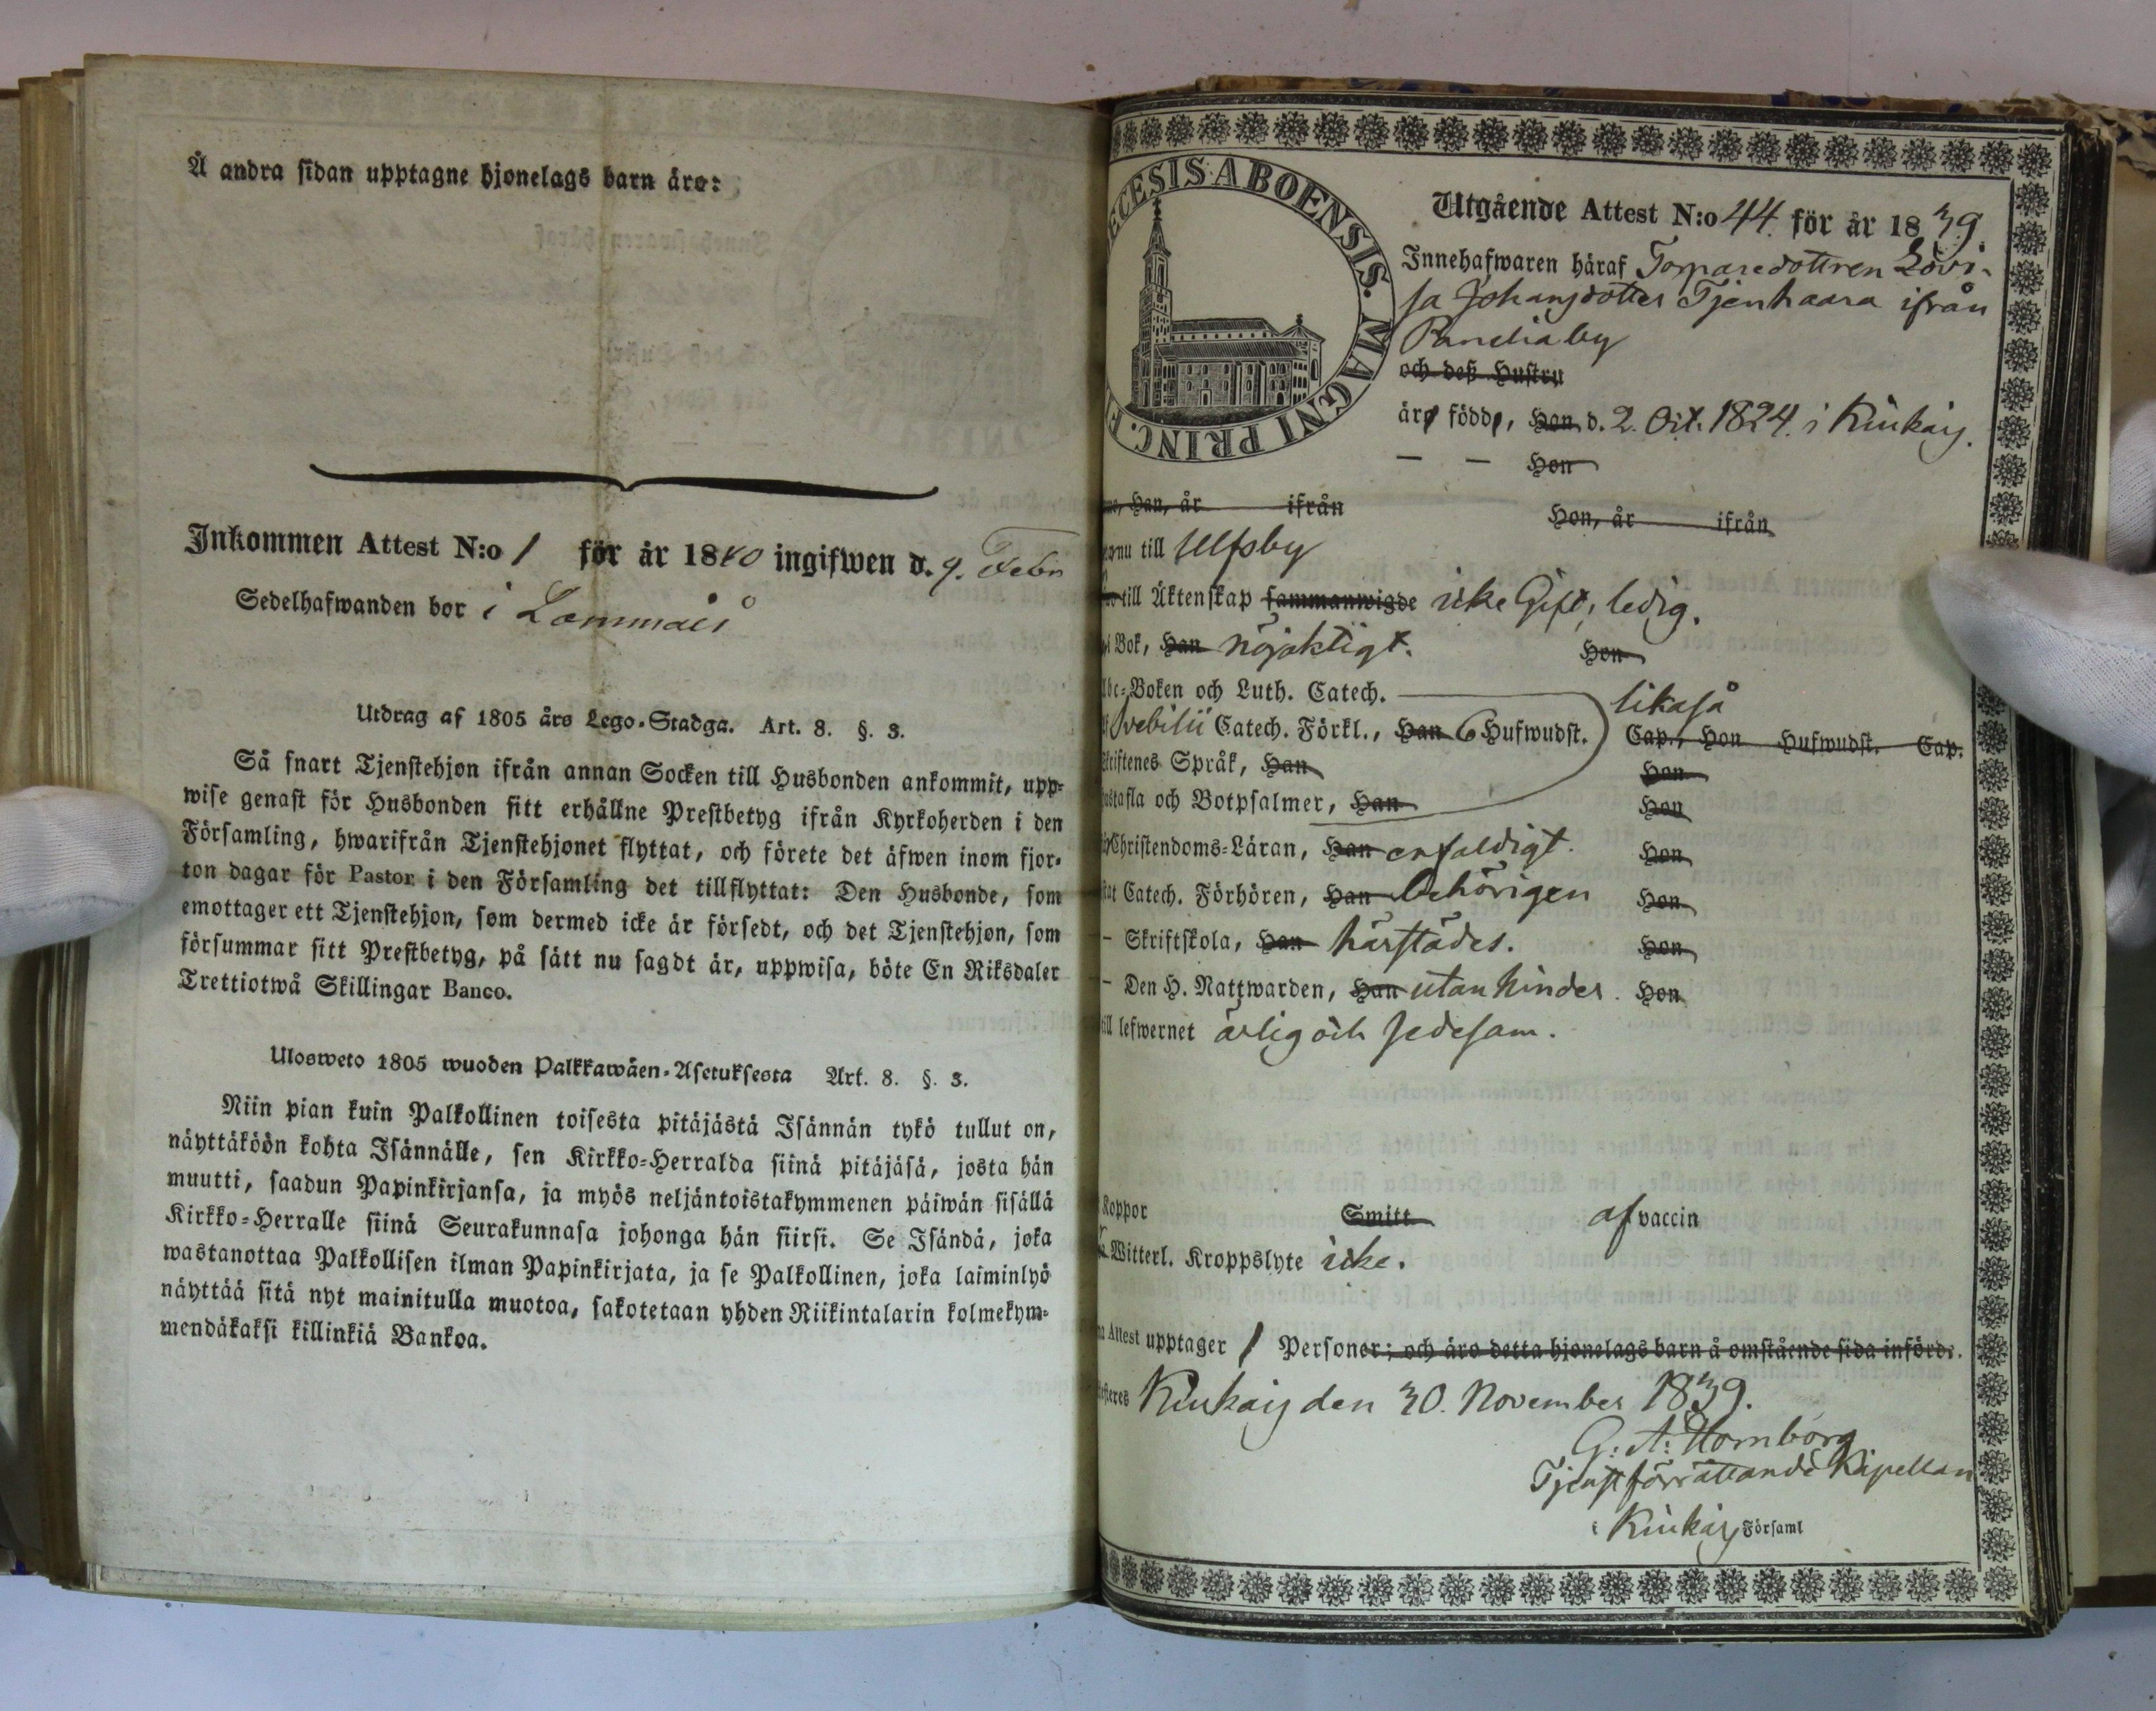 Å andra sidan upptagne hjonelags barn äro:
Inkommen Attest N:o 1 för år 1840 ingifwen d. 9. Febr
Sedelhafwanden bor i Lammais
Utdrag af 1805 års Lego-Stadga. Art. 8. §. 3.
Så snart Tjenstehjon ifrån annan Socken till Husbonden ankommit, upp-
wise genast för Husbonden sitt erhållne Prestbetyg ifrån Kyrkoherden i den
Församling, hwarifrån Tjenstehjonet flyttat, och förete det äfwen inom fjor-
ton dagar för Pastor i den Församling det tillflyttat: Den Husbonde, som
emottager ett Tjenstehjon, som dermed icke är försedt, och det Tjenstehjon, som
försummar sitt Prestbetyg, på sätt nu sagdt är, uppwisa, böte En Riksdaler
Trettiotwå Skillingar Banco.
Ulosweto 1805 wuoden Palkkawäen-Asetuksesta Art. 8. §. 3.
Niin pian kuin Palkollinen toisesta pitäjästä Isännän tykö tullut on,
näyttäköön kohta Isännälle, sen Kirkko-Herralda siinä pitäjäsä, josta hän
muutti, saadun Papinkirjansa, ja myös neljäntoistakymmenen päiwän sisällä
Kirkko-Herralle siinä Seurakunnasa johonga hän siirsi. Se Isändä, joka
wastanottaa Palkollisen ilman Papinkirjata, ja se Palkollinen, joka laiminlyö
näyttää sitä nyt mainitulla muotoa, sakotetaan yhden Riikintalarin kolmekym-
mendäkaksi killinkiä Bankoa.
ECESIS ABOENSIS. MAGNI PRINC. F
Utgående Attest N:o 44. för år 1839.
Innehafwaren häraf Torparedottren Lovi-
sa Johansdotter Tjenhaara ifrån
by
och deß Hustru
äro födde, Han d. 2. Oct. 1824. i Kiukais.
— — Hon
Han, år ifrån Hon, år ifrån
nu till Ulfsby
till Äktenskap sammanwigde icke Gift, ledig.
i Bok, Han nöjaktigt. Hon
Abc-Boken och Luth. Catech. likaså
Svebilii Catech. Förkl., Han 6 Hufwudst. Cap., Hon Hufwudst. Cap.
Skriftenes Språk, Han Hon
Hustafla och Botpsalmer, Han Hon
Christendoms-Läran, Han enfaldigt. Hon
Catech. Förhören, Han behörigen Hon
– Skriftskola, Han härstädes. Hon
– Den H. Nattwarden, Han utan hinder. Hon
till lefwernet ärlig och sedesam.
Koppor Smitt af vaccin
Witterl. Kroppslyte icke.
Attest upptager 1 Personer; och äro detta hjonelags barn å omstående sida införde.
Kiukais den 30. November 1839.
G: A: Hornborg
Tjenstförrättande Kapellan
i Kiukais Församl